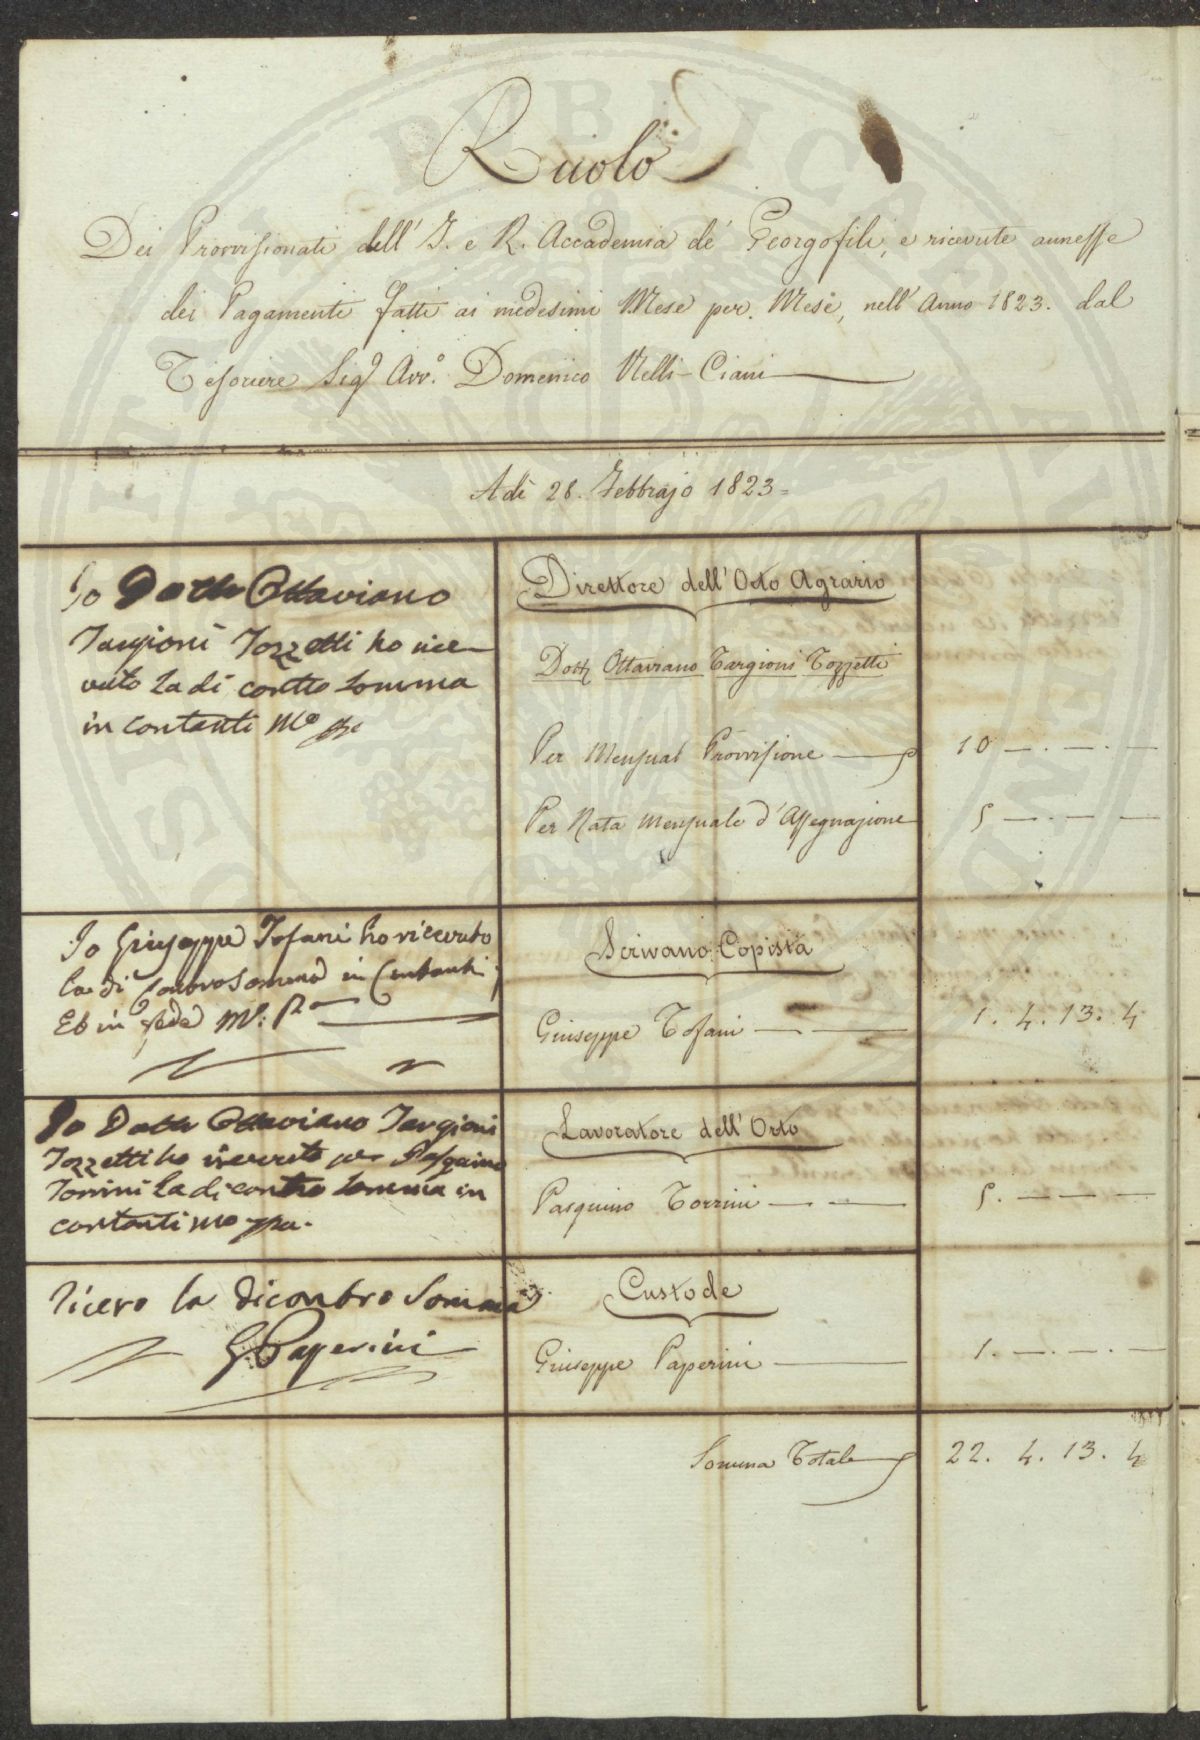 Ruolo
Dei Provvisionati dell' I. e R. Accademia de' Georgofili, e ricevute annesse
dei Pagamenti fatti ai medesimi Mese per Mese, nell' Anno 1823. dal
Tesoriere Sig.r Avv.o Domenico Nelli-Ciani
Adì 28. Febbrajo 1823=
Io Dottr Ottaviano
Targioni Tozzetti ho rice-
vuto la di contro somma
in contanti Mo ppa
Direttore dell' Orto Agrario
Dott. Ottaviano Targioni Tozzetti
Per Mensual Provvisione — 10 —.—.—
Per Rata Mensuale d'Assegnazione 5 —.—.—
Io Giuseppe Tofani ho ricevuto
la di Controsomma in Contanti
Et in fede Mo: Pa
Scrivano Copista
Giuseppe Tofani — — 1. 4. 13. 4
Io Dottr Ottaviano Targioni
Tozzetti ho ricevuto per Pasquino
Torrini la di contro somma in
contanti mo ppa.
Lavoratore dell' Orto
Pasquino Torrini — — 5. — — —
ricevo la dicontro Somma
G. Paperini
Custode
Giuseppe Paperini — 1. —.—.—
Somma Totale 22. 4. 13. 4